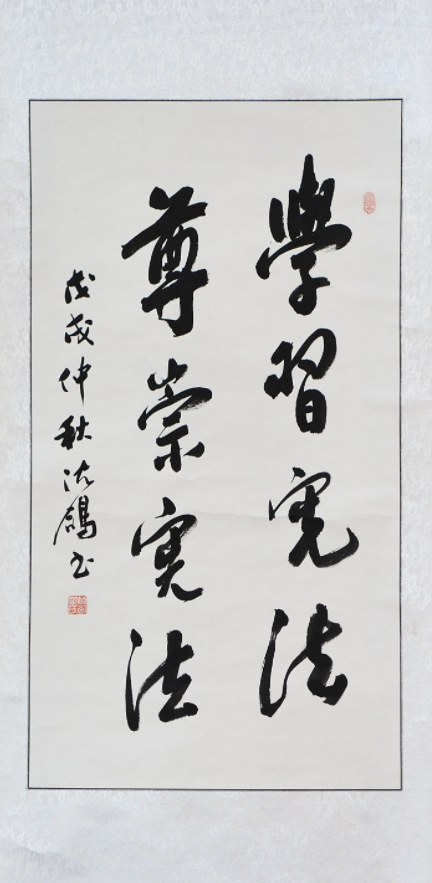 學習憲法
尊崇憲法
戊戌仲秋 鴻書